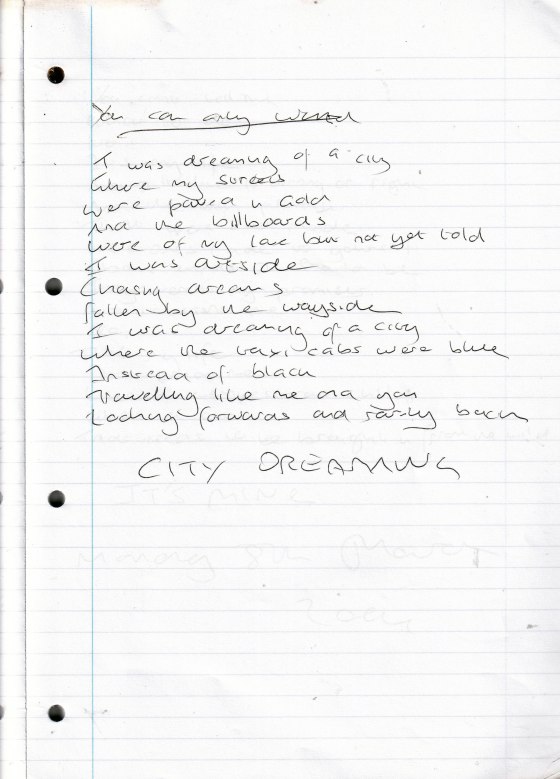 You can only
I was dreaming of a city
Where my streets
were paved in gold
And the billboards
were of my love but not yet told
I was outside
Chasing dreams
fallen by the wayside
I was dreaming of a city
where the taxi cabs were blue
Instead of black
Travelling like me and you
Looking forwards and rarely back
CITY DREAMING
IT'S MINE